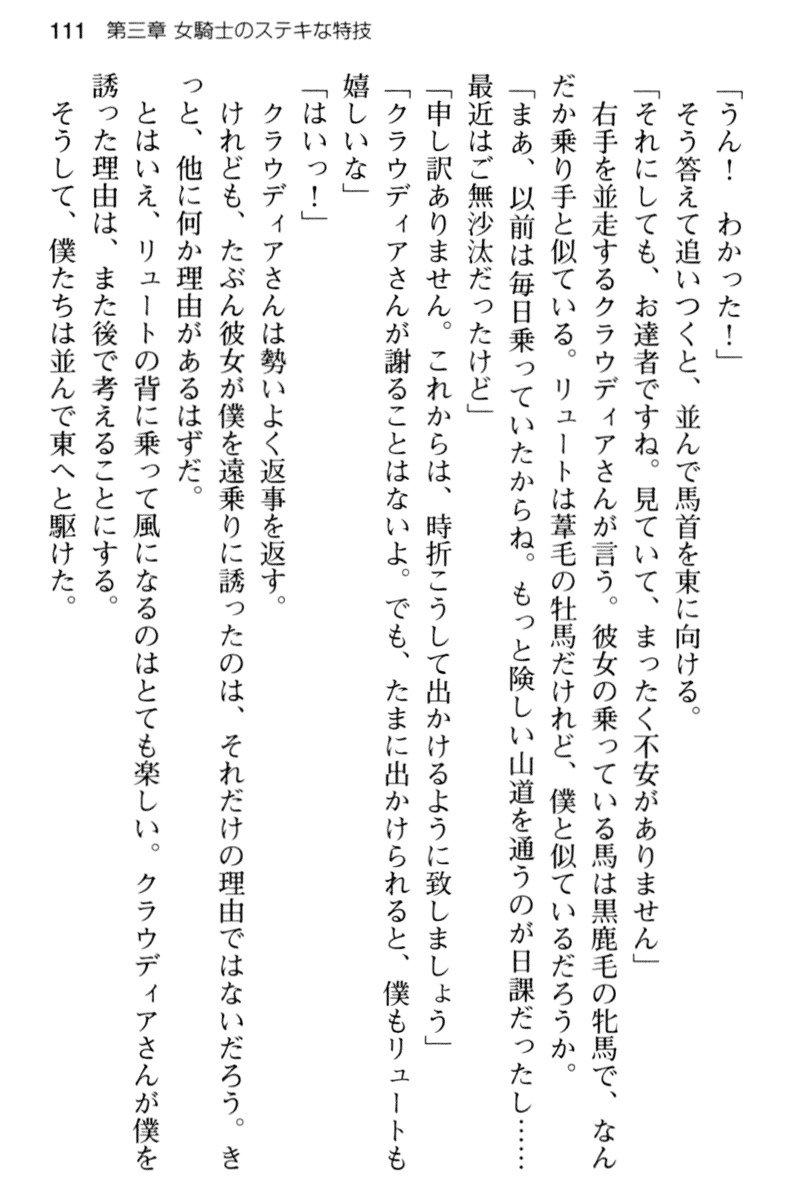 111 第三章 女騎士のステキな特技
「うん！　わかった！」
　そう答えて追いつくと、並んで馬首を東に向ける。
「それにしても、お達者ですね。見ていて、まったく不安がありません」
　右手を並走するクラウディアさんが言う。彼女の乗っている馬は黒鹿毛の牝馬で、なん
だか乗り手と似ている。リュートは葦毛の牡馬だけれど、僕と似ているだろうか。
「まぁ、以前は毎日乗っていたからね。もっと険しい山道を通うのが日課だったし……
最近はご無沙汰だったけど」
「申し訳ありません。これからは、時折こうして出かけるように致しましょう」
「クラウディアさんが謝ることはないよ。でも、たまに出かけられると、僕もリュートも
嬉しいな」
「はいっ！」
　クラウディアさんは勢いよく返事を返す。
　けれども、たぶん彼女が僕を遠乗りに誘ったのは、それだけの理由ではないだろう。き
っと、他に何か理由があるはずだ。
　とはいえ、リュートの背に乗って風になるのはとても楽しい。クラウディアさんが僕を
誘った理由は、また後で考えることにする。
　そうして、僕たちは並んで東へと駆けた。